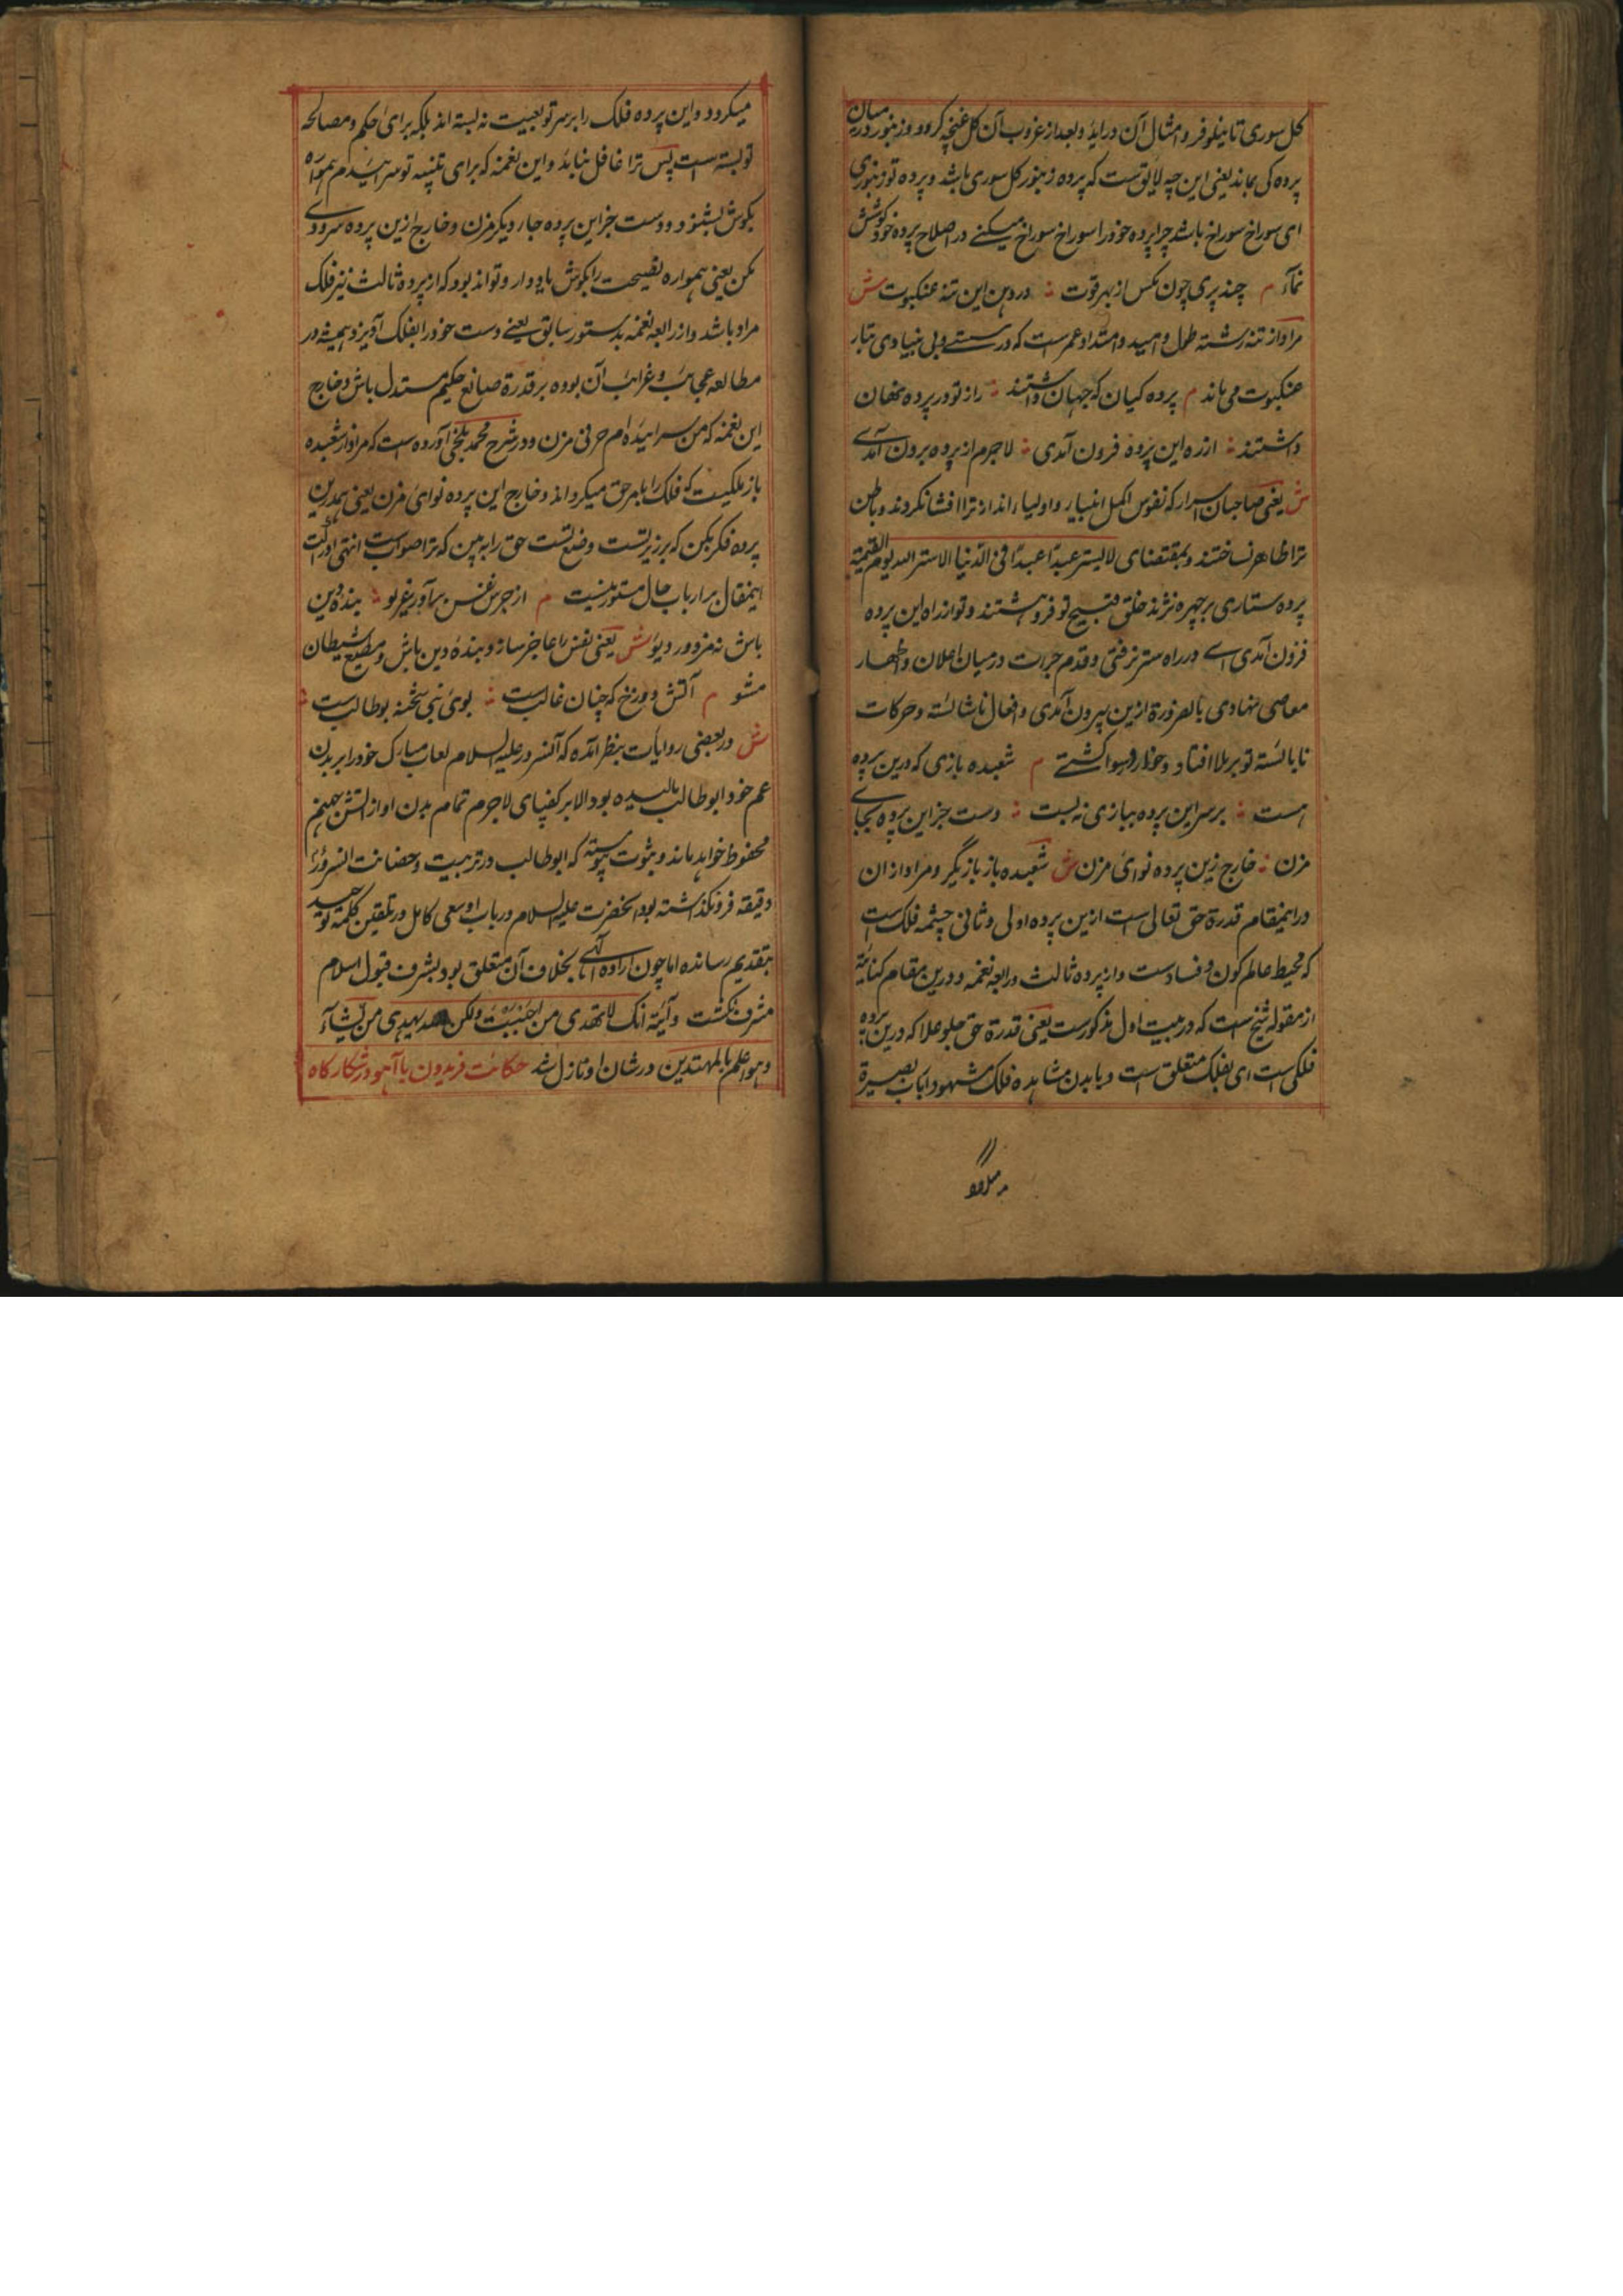 گل سوری تا نیلوفر و امثال آن در آید و بعد از غروب آن گل غنچه گردد و زنبور در میان
پرده کی بماند یعنی این چه لایق تست که پرده زنبور گل سوری باشد و پرده تو زنبوری
ای سوراخ سوراخ باشد چرا پرده خود را سوراخ سوراخ میکنے در اصلاح پرده خود کوشش
نمآء م چند پری چون مکس از بهر قوت ؞ در دهن این تنه عنکبوت ش
مراد از تنه رشته طول و امید و امتداد عمرست که در سستے و بی بنیادی بتار
عنکبوت می ماند م پرده کیان که جهان داشتند ؞ راز تو در پرده نهان
داشتند ؞ از ره این پرده فزون آمدی ؞ لاجرم از پرده برون آمدے
ش یعنی صاحبان اسرار که نفوس اکمل انبیار و اولیاء اند راز ترا افشا نکردند و باطن
ترا ظاهر نساختند و بمقتضای لا یستر عبدًا عبدًا فی الدّنیا الا ستر الله یوم القیمة
پرده ستاری بر چهره نژند خلق قبیح تو فروهشتند و تو از راه این پرده
فزون آمدی اے در راه ستر نرفتی و قدم جرات در میان اعلان و اظهار
معاصی نهادی بالضرورة ازین بیرون آمدی و افعال ناشائسته و حرکات
نابائسته تو بر ملا افتاد و خوار و رسوا گشتے م شعبده بازی که درین پرده
هست ؞ بر سر این پرده ببازی نه بست ؞ دست جز این پرده بجاے
مزن ؞ خارج زین پرده نوائی مزن ش شعبده باز بازیگر و مراد از ان
در اینمقام قدرة حق تعالی است ازین پرده اولی و ثانی چشمه فلک است
که محیط عالم کون و فسادست و از پرده ثالث و رابعه نغمه و درین مقام کنایة
از مقوله شیخ است که در بیت اول مذکورست یعنی قدرة حق جلو علا که درین پرده
فلکی است ای بفلک متعلق است و بابدن مشاهده فلک مشهود ارباب بصیرة
میگردد
میکردد و این پرده فلک را بر سر تو بعبیت نه بسته اند بلکه برای حکم و مصالحه
تو بسته است پس ترا غافل نباید و این نغمه که برای تنبیه تو سرائیدم همواره
بگوش بشنو و دست جز این پرده جار دیکر مزن و خارج ازین پرده سرودے
مکن یعنی همواره نصیحت را بگوش یاد دار و تواند بود که از پرده ثالث نیز فلک
مراد باشد و از رابعه نغمه بدستور سابق یعنے دست خود را بفلک آویز و همیشه در
مطالعه عجائب و غرائب آن بوده بر قدرة صانع حکیم مستدل باش و خارج
این نغمه که من سرائیده ام حرفی مزن و در شرح محمد بلخی آورده است که مراد از شعبده
باز ملکیست که فلک را بامر حق میکرداند و خارج این پرده نوائی مزن یعنی همدرین
پرده فکر بکن که بر زیر تست وضع تست حق را به بین که ترا صوابست انتهی
اینمقال بر ارباب حال مستور نیست م از جرس نفس برآور غریو ؞ بنده دین
باش نه مزدور دیو ش یعنی نفس را عاجز ساز و بندهٔ دین باش و مطیع شیطان
مشو م آتش دوزخ که چنان غالبست ؞ بوی نبی شحنه بوطالبست ؞
ش در بعضی روایات بنظر آمده که آنسرور علیه السلام لعاب مبارک خود را بر بدن
عم خود ابوطالب مالیده بود الا بر کفپای لاجرم تمام بدن او از اتش جهنم
محفوظ خواهد ماند و بثبوت پیوسته که ابوطالب در تربیت و حضانت انسرور
دقیقه فرونگذاشته بود انحضرت علیه السلام در باب او سعی کامل در تلقین کلمه توحید
بتقدیم رسانده اما چون اراده الهے بخلاف آن متعلق بود بشرف قبول اسلام
مشرف نگشت و آیة انک لا تهدی من احببت ولکن الله یهدی من یشآء
و هو اعلم بالمهتدین در شان او نازل شد حکائت فریدون با آهو در شکارگاه